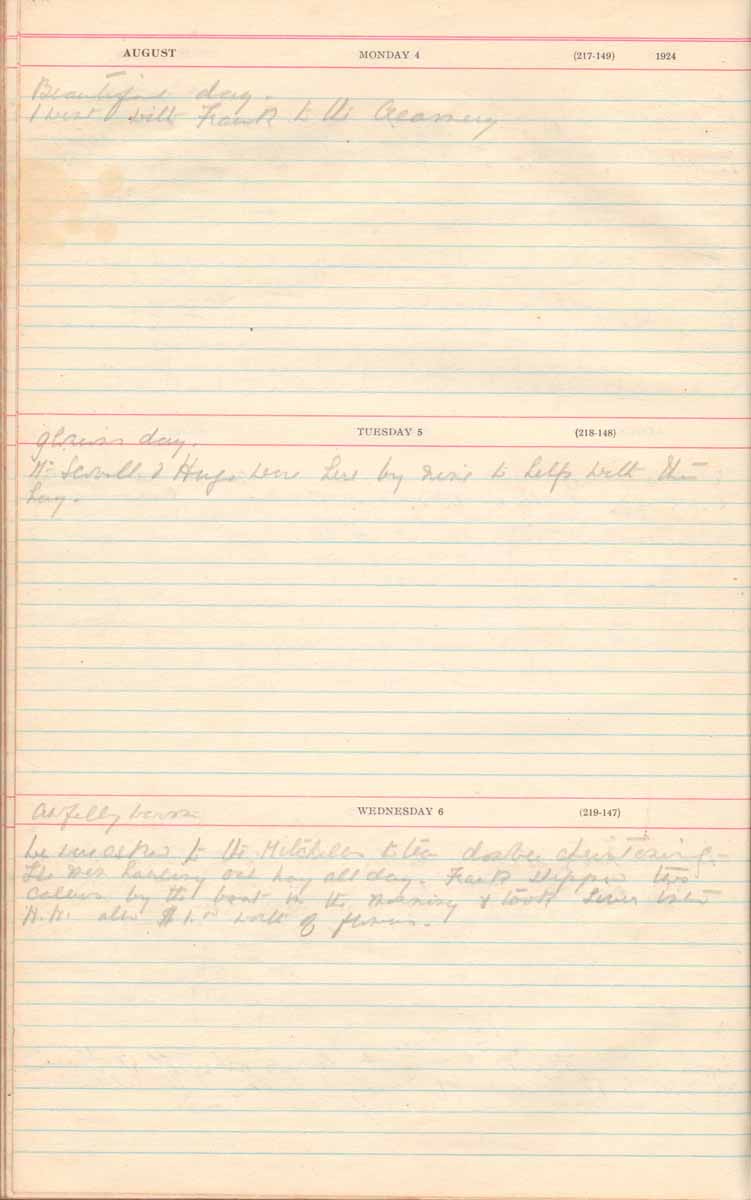 AUGUST MONDAY 4 (217-149) 1924
Beautiful day.
I went with Frank to the Creamery
TUESDAY 5 (218-148)
glorious day.
Mr & Hugo were here by nine to help with the
hay.
WEDNESDAY 6 (219-147)
Awfully warm
We to the Mitchells to tea christening.
The men hauling out hay all day. Frank shipped two
by the boat in the morning & took
also $1.00 worth of flowers.